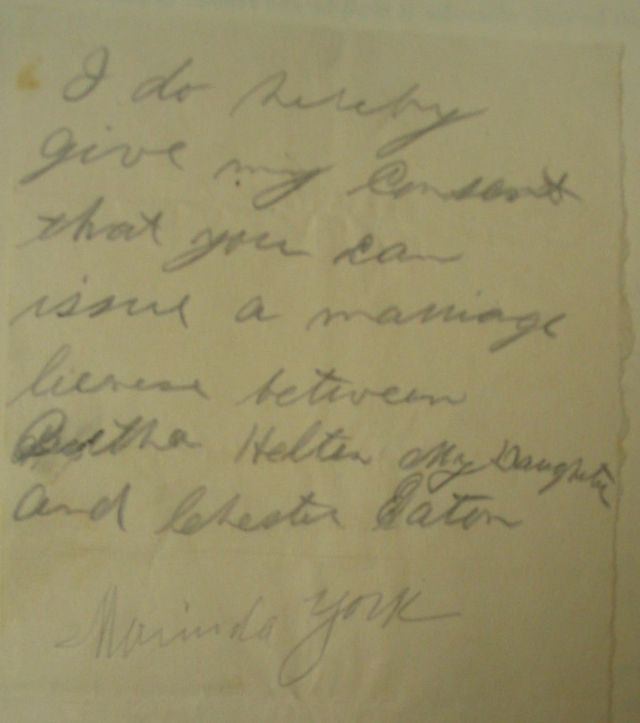 I do hereby
give my consent
that you can
issue a marriage
license between
Bertha Helten My Daughter
and Chester Eaton
Marinda York